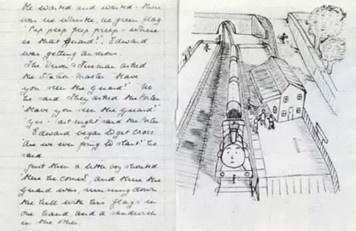 He waited and waited - there
was no whistle, no green flag.
'Peep peep peep peep - where
is that Guard?'. Edward
was getting anxious.
The Driver & Fireman asked
the Station Master 'Have
you see the guard?' 'No'
he said. They asked the Porter
'Have you seen the guard?'
'Yes - last night' said the Porter.
Edward began to get cross
'Are we ever going to start?' he
said
Just then a little boy shouted
'Here he comes', and there the
Guard was, running down
the hill with his flags in
one hand and a sandwich
in the other.